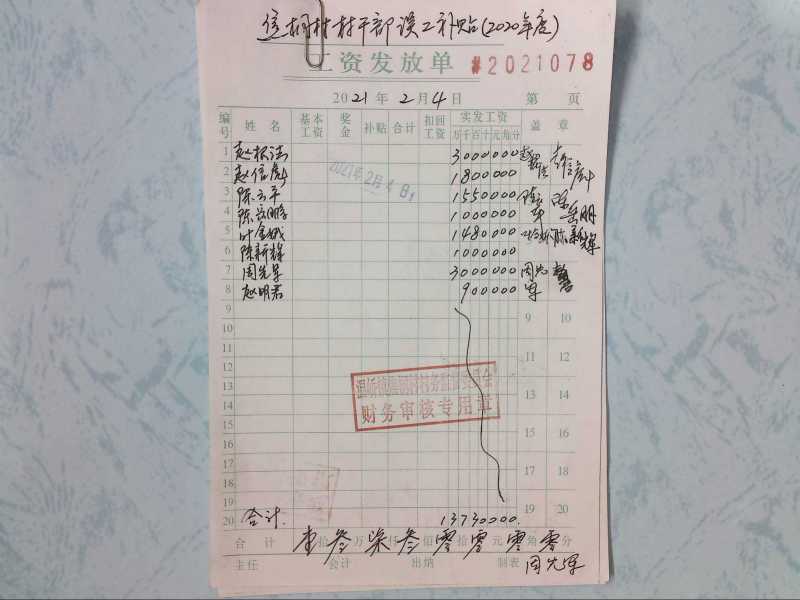 桐村村干部误工补贴(2020年度)
工资发放单 #2021078
2021年2月4日 第 页
编号 姓名 基本工资 奖金 补贴 合计 扣回工资 实发工资 万千百十元角分 盖章
1 赵根法 3000000
2 赵信 1800000
3 陈云平 1550000
4 陈岳明 1000000 岳明
5 叶金 1480000
6 陈新辉 1000000
7 周先军 3000000 周先军
8 赵明君 900000
2021年2月4日
9 9 10
10
11 11 12
12
13 13 14
财务审核专用章
14
15 15 16
16
17 17 18
18
19 19 20
20 合计 13730000
合计 壹拾叁万柒仟叁佰零拾零元零角零分
主任 会计 出纳 制表 周先军